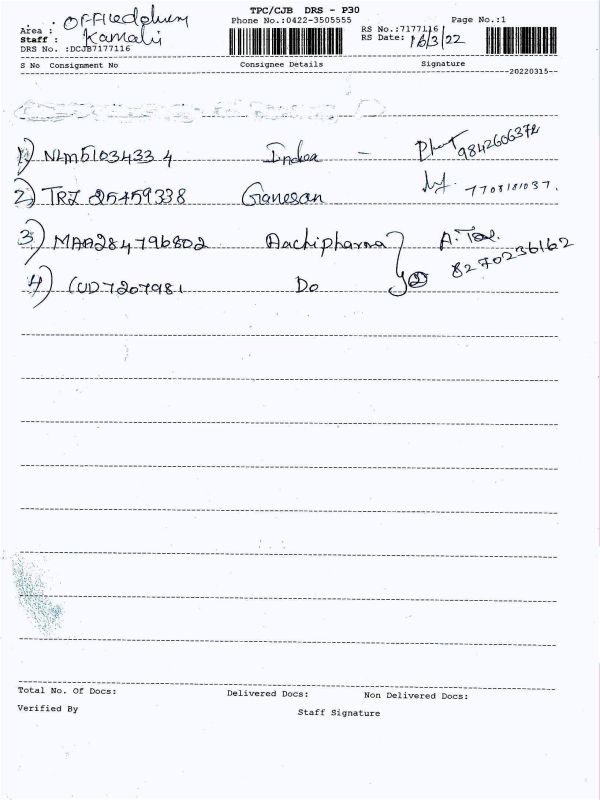 TPC/CJB DRS - P30
Phone No.:0422-3505555 Page No.:1
Area :
Staff : Kamali
RS No.:7177116
RS Date: 16/3/22
DRS No. :DCJB7177116
S No Consignment No Consignee Details Signature
20220315
1) NLM5103433 4 India - 9842606372
2) TRZ 25459338 Ganesan 7708181037.
3) MAA284796802 Aachipharma A.
4) CUD7207981 Do 2 8270236162
Total No. Of Docs: Delivered Docs: Non Delivered Docs:
Verified By Staff Signature